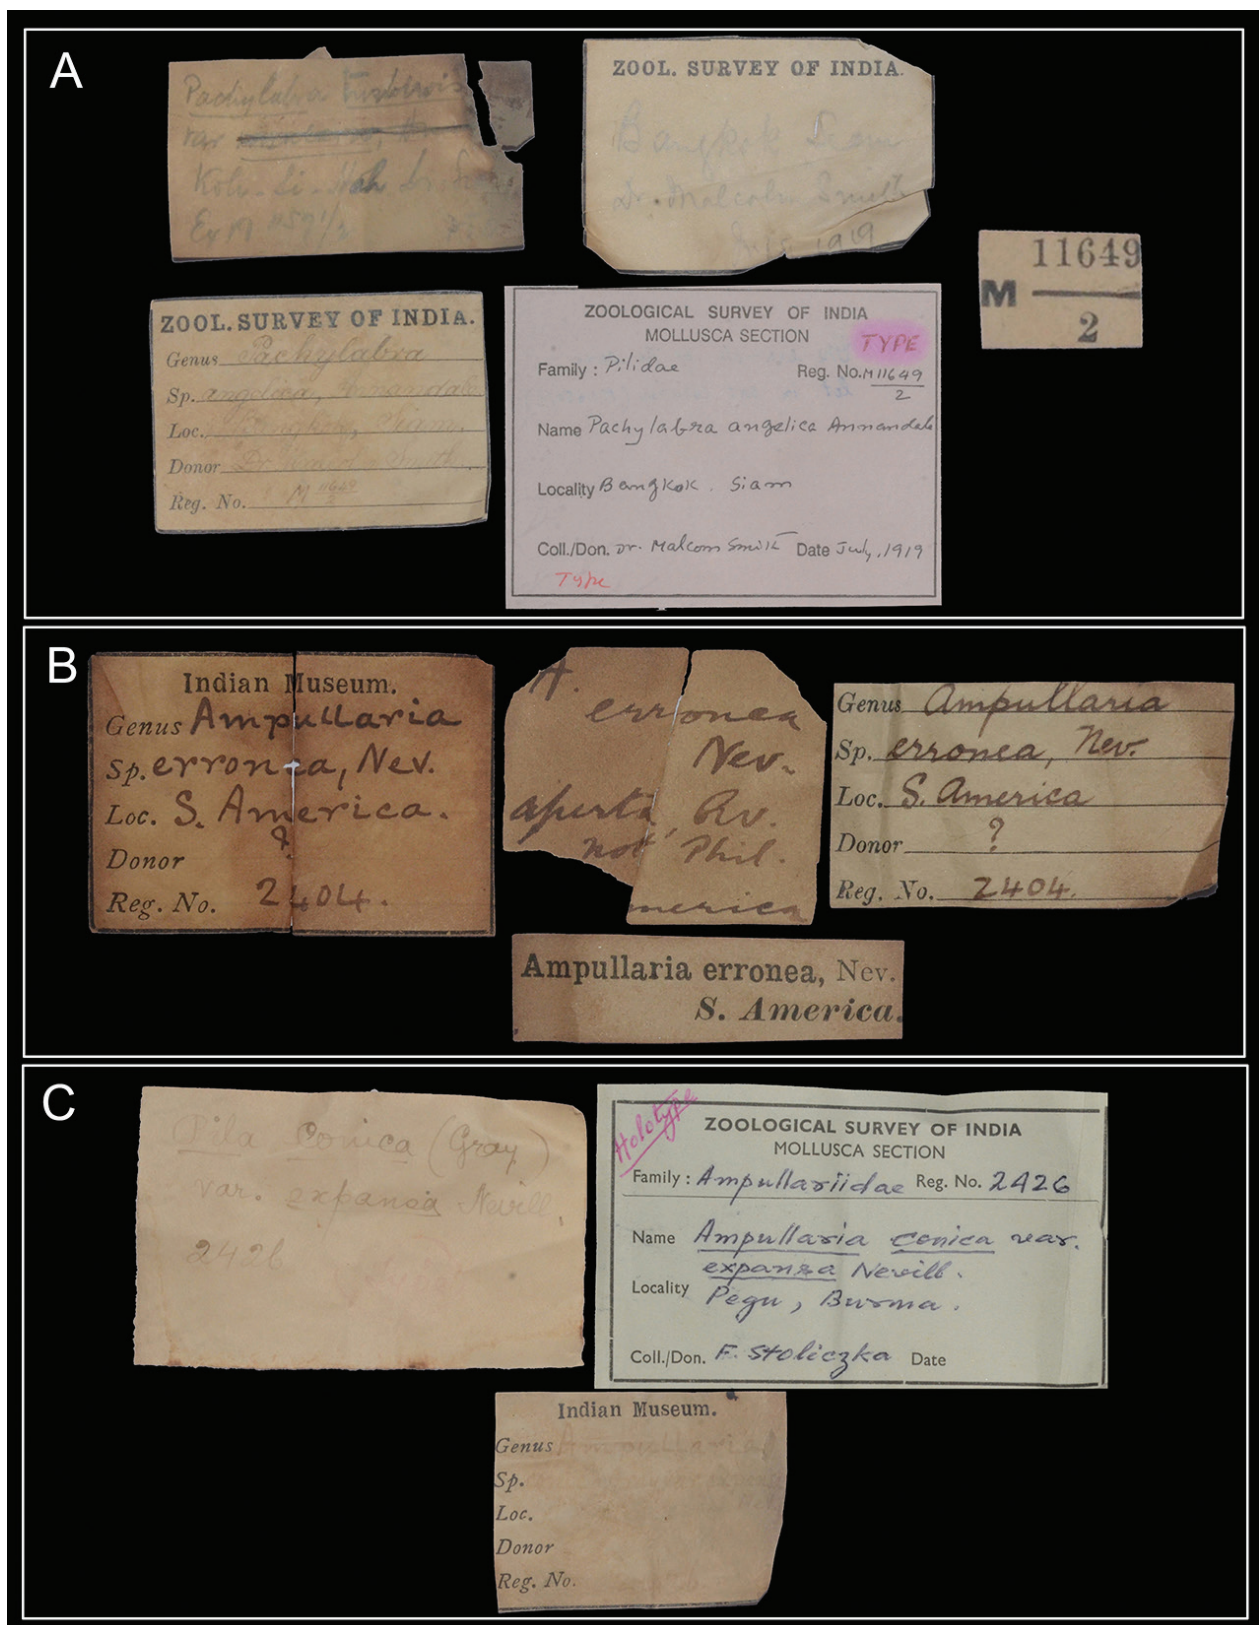 A
Pachylabra
var
Koh-Si-Hah
ZOOL. SURVEY OF INDIA.
Bangkok Siam
Dr. Malcolm Smith
1919
11649
M
2
ZOOL. SURVEY OF INDIA.
Genus Pachylabra
Sp. angelica, Annandale
Loc. Bangkok, Siam.
Donor Dr. Smith
Reg. No. M 11649
2
ZOOLOGICAL SURVEY OF INDIA
MOLLUSCA SECTION
TYPE
Family : Pilidae Reg. No. M11649
2
Name Pachylabra angelica Annandale
Locality Bangkok. Siam
Coll./Don. Dr. Malcom Smith Date July, 1919
Type
B
Indian Museum.
Genus Ampullaria
Sp. erronea, Nev.
Loc. S. America.
Donor ?
Reg. No. 2404.
A.
erronea
Nev.
aperta, Rv.
not Phil.
merica
Genus Ampullaria
Sp. erronea, Nev.
Loc. S. America
Donor ?
Reg. No. 2404.
Ampullaria erronea, Nev.
S. America.
C
Pila conica (Gray)
var. expansa Nevill.
2426
Holotype
ZOOLOGICAL SURVEY OF INDIA
MOLLUSCA SECTION
Family : Ampullariidae Reg. No. 2426
Name Ampullaria conica var.
expansa Nevill.
Locality Pegu, Burma.
Coll./Don. F. Stoliczka Date
Indian Museum.
Genus Ampullaria
Sp.
Loc.
Donor
Reg. No.